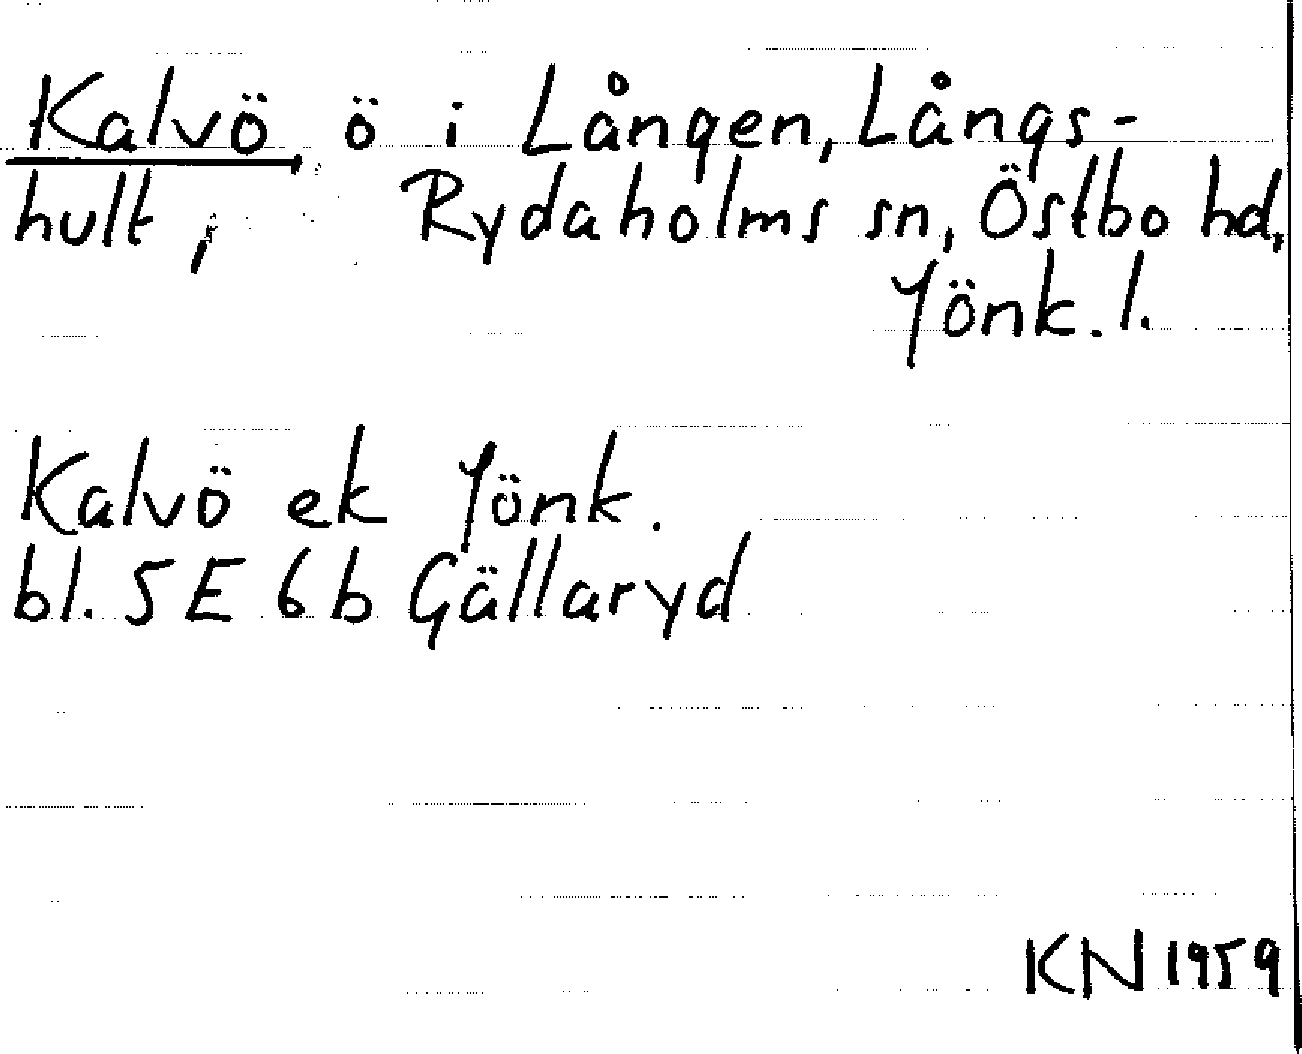 Kalvö ö i Lången, Långs-
hult, Rydaholms sn, Östbo hd,
Jönk. l.
Kalvö ek Jönk.
bl. 5 E 6 b Gällaryd
KN 1959